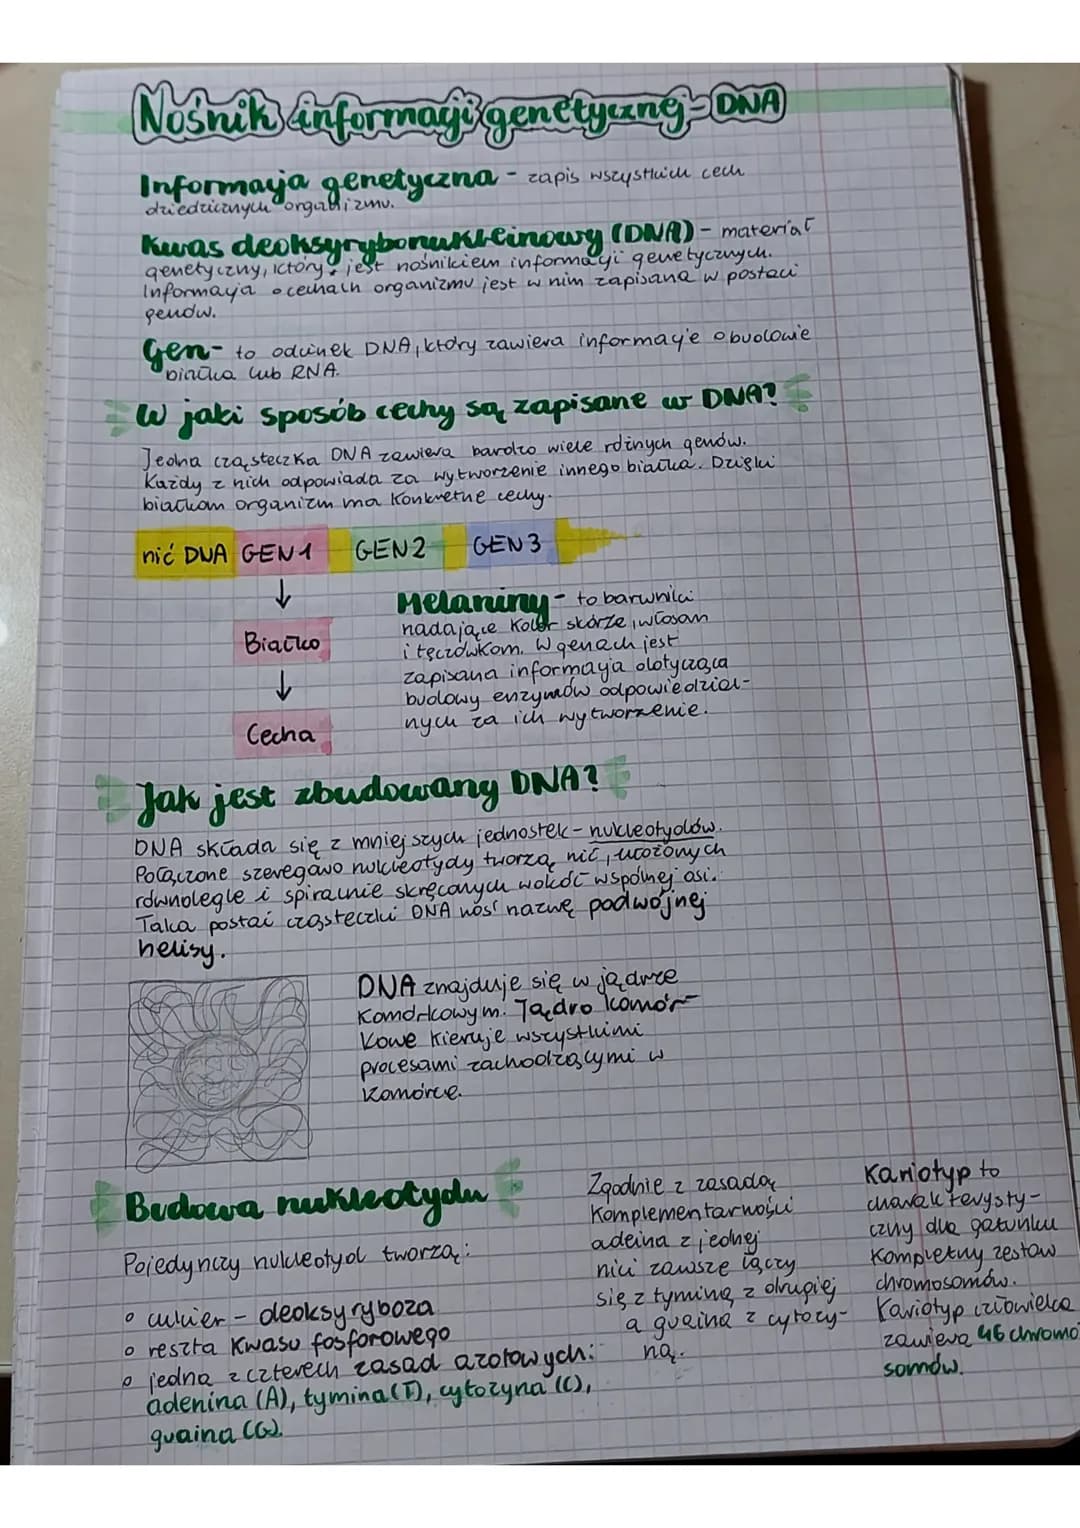 Nośnik informacji genetycznej - DNA
Informacja genetyczna - zapis wszystkich cech
dziedzicznych organizmu.
Kwas deoksyrybonukleinowy (DNA) - materiał
genetyczny, który jest nośnikiem informacji genetycznych.
Informacja o cechach organizmu jest w nim zapisana w postaci
genów.
Gen - to odcinek DNA, który zawiera informacje o budowie
białka lub RNA.
W jaki sposób cechy są zapisane w DNA?
Jedna cząsteczka DNA zawiera bardzo wiele różnych genów.
Każdy z nich odpowiada za wytworzenie innego białka. Dzięki
białkom organizm ma konkretne cechy.
nić DNA GEN 1 GEN 2 GEN 3
↓
Białko
↓
Cecha
Melaniny - to barwniki
nadające kolor skórze, włosom
i tęczówkom. W genach jest
zapisana informacja dotycząca
budowy enzymów odpowiedzial-
nych za ich wytworzenie.
Jak jest zbudowany DNA?
DNA składa się z mniejszych jednostek - nukleotydów.
Połączone szeregowo nukleotydy tworzą nić, ułożonych
równolegle i spiralnie skręconych wokół wspólnej osi.
Taka postać cząsteczki DNA nosi nazwę podwójnej
helisy.
DNA znajduje się w jądrze
komórkowym. Jądro komór-
kowe kieruje wszystkimi
procesami zachodzącymi w
komórce.
Budowa nukleotydu
Pojedynczy nukleotyd tworzą:
◦ cukier - deoksyryboza
◦ reszta kwasu fosforowego
◦ jedna z czterech zasad azotowych:
adenina (A), tymina (T), cytozyna (C),
guaina (G).
Zgodnie z zasadą
komplementarności
adeina z jednej
nici zawsze łączy
się z tyminą z drugiej
a guaina z cytozy-
ną.
Kariotyp to
charakterysty-
czny dla gatunku
kompletny zestaw
chromosomów.
Kariotyp człowieka
zawiera 46 chromo-
somów.